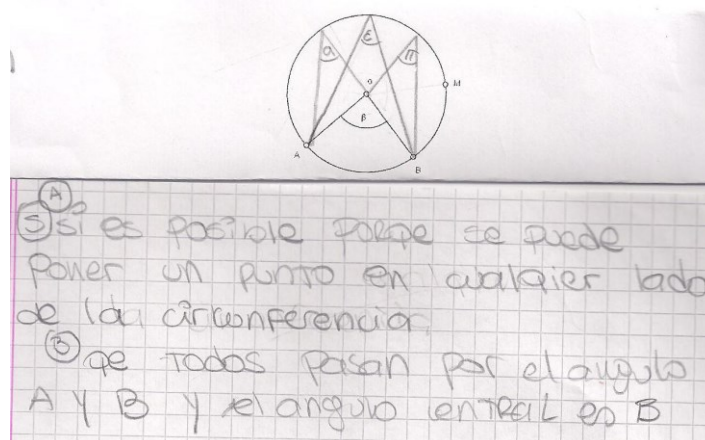 α ε π
O
M
β
A
B
A
5 si es posible porqe se puede
Poner un punto en cualqier lado
de la circunferencia
B qe todos pasan por el angulo
A y B y el angulo central es B